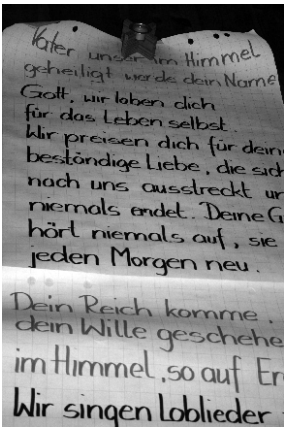 Vater unser im Himmel
geheiligt werde dein Name
Gott, wir loben dich
für das Leben selbst.
Wir preisen dich für dein
beständige Liebe, die sich
nach uns ausstreckt
niemals endet. Deine G
hört niemals auf, sie
jeden Morgen neu.
Dein Reich komme.
dein Wille geschehe
im Himmel, so auf Er
Wir singen Loblieder